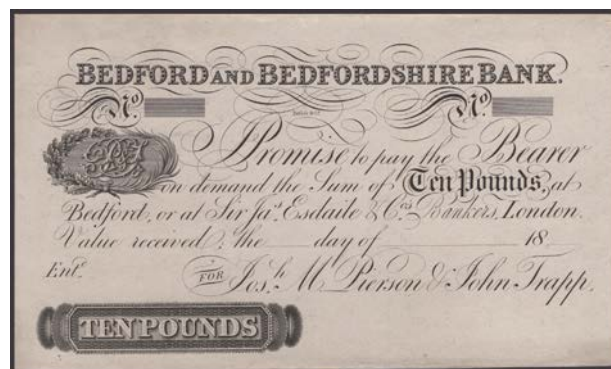 BEDFORD AND BEDFORDSHIRE BANK.
No. No.
Promise to pay the Bearer
on demand the Sum of Ten Pounds, at
Bedford, or at Sir Jas. Esdaile & Cos. Bankers, London.
Value received; the day of 18
Entd. FOR Josh. M. Pierson & John Trapp.
TEN POUNDS